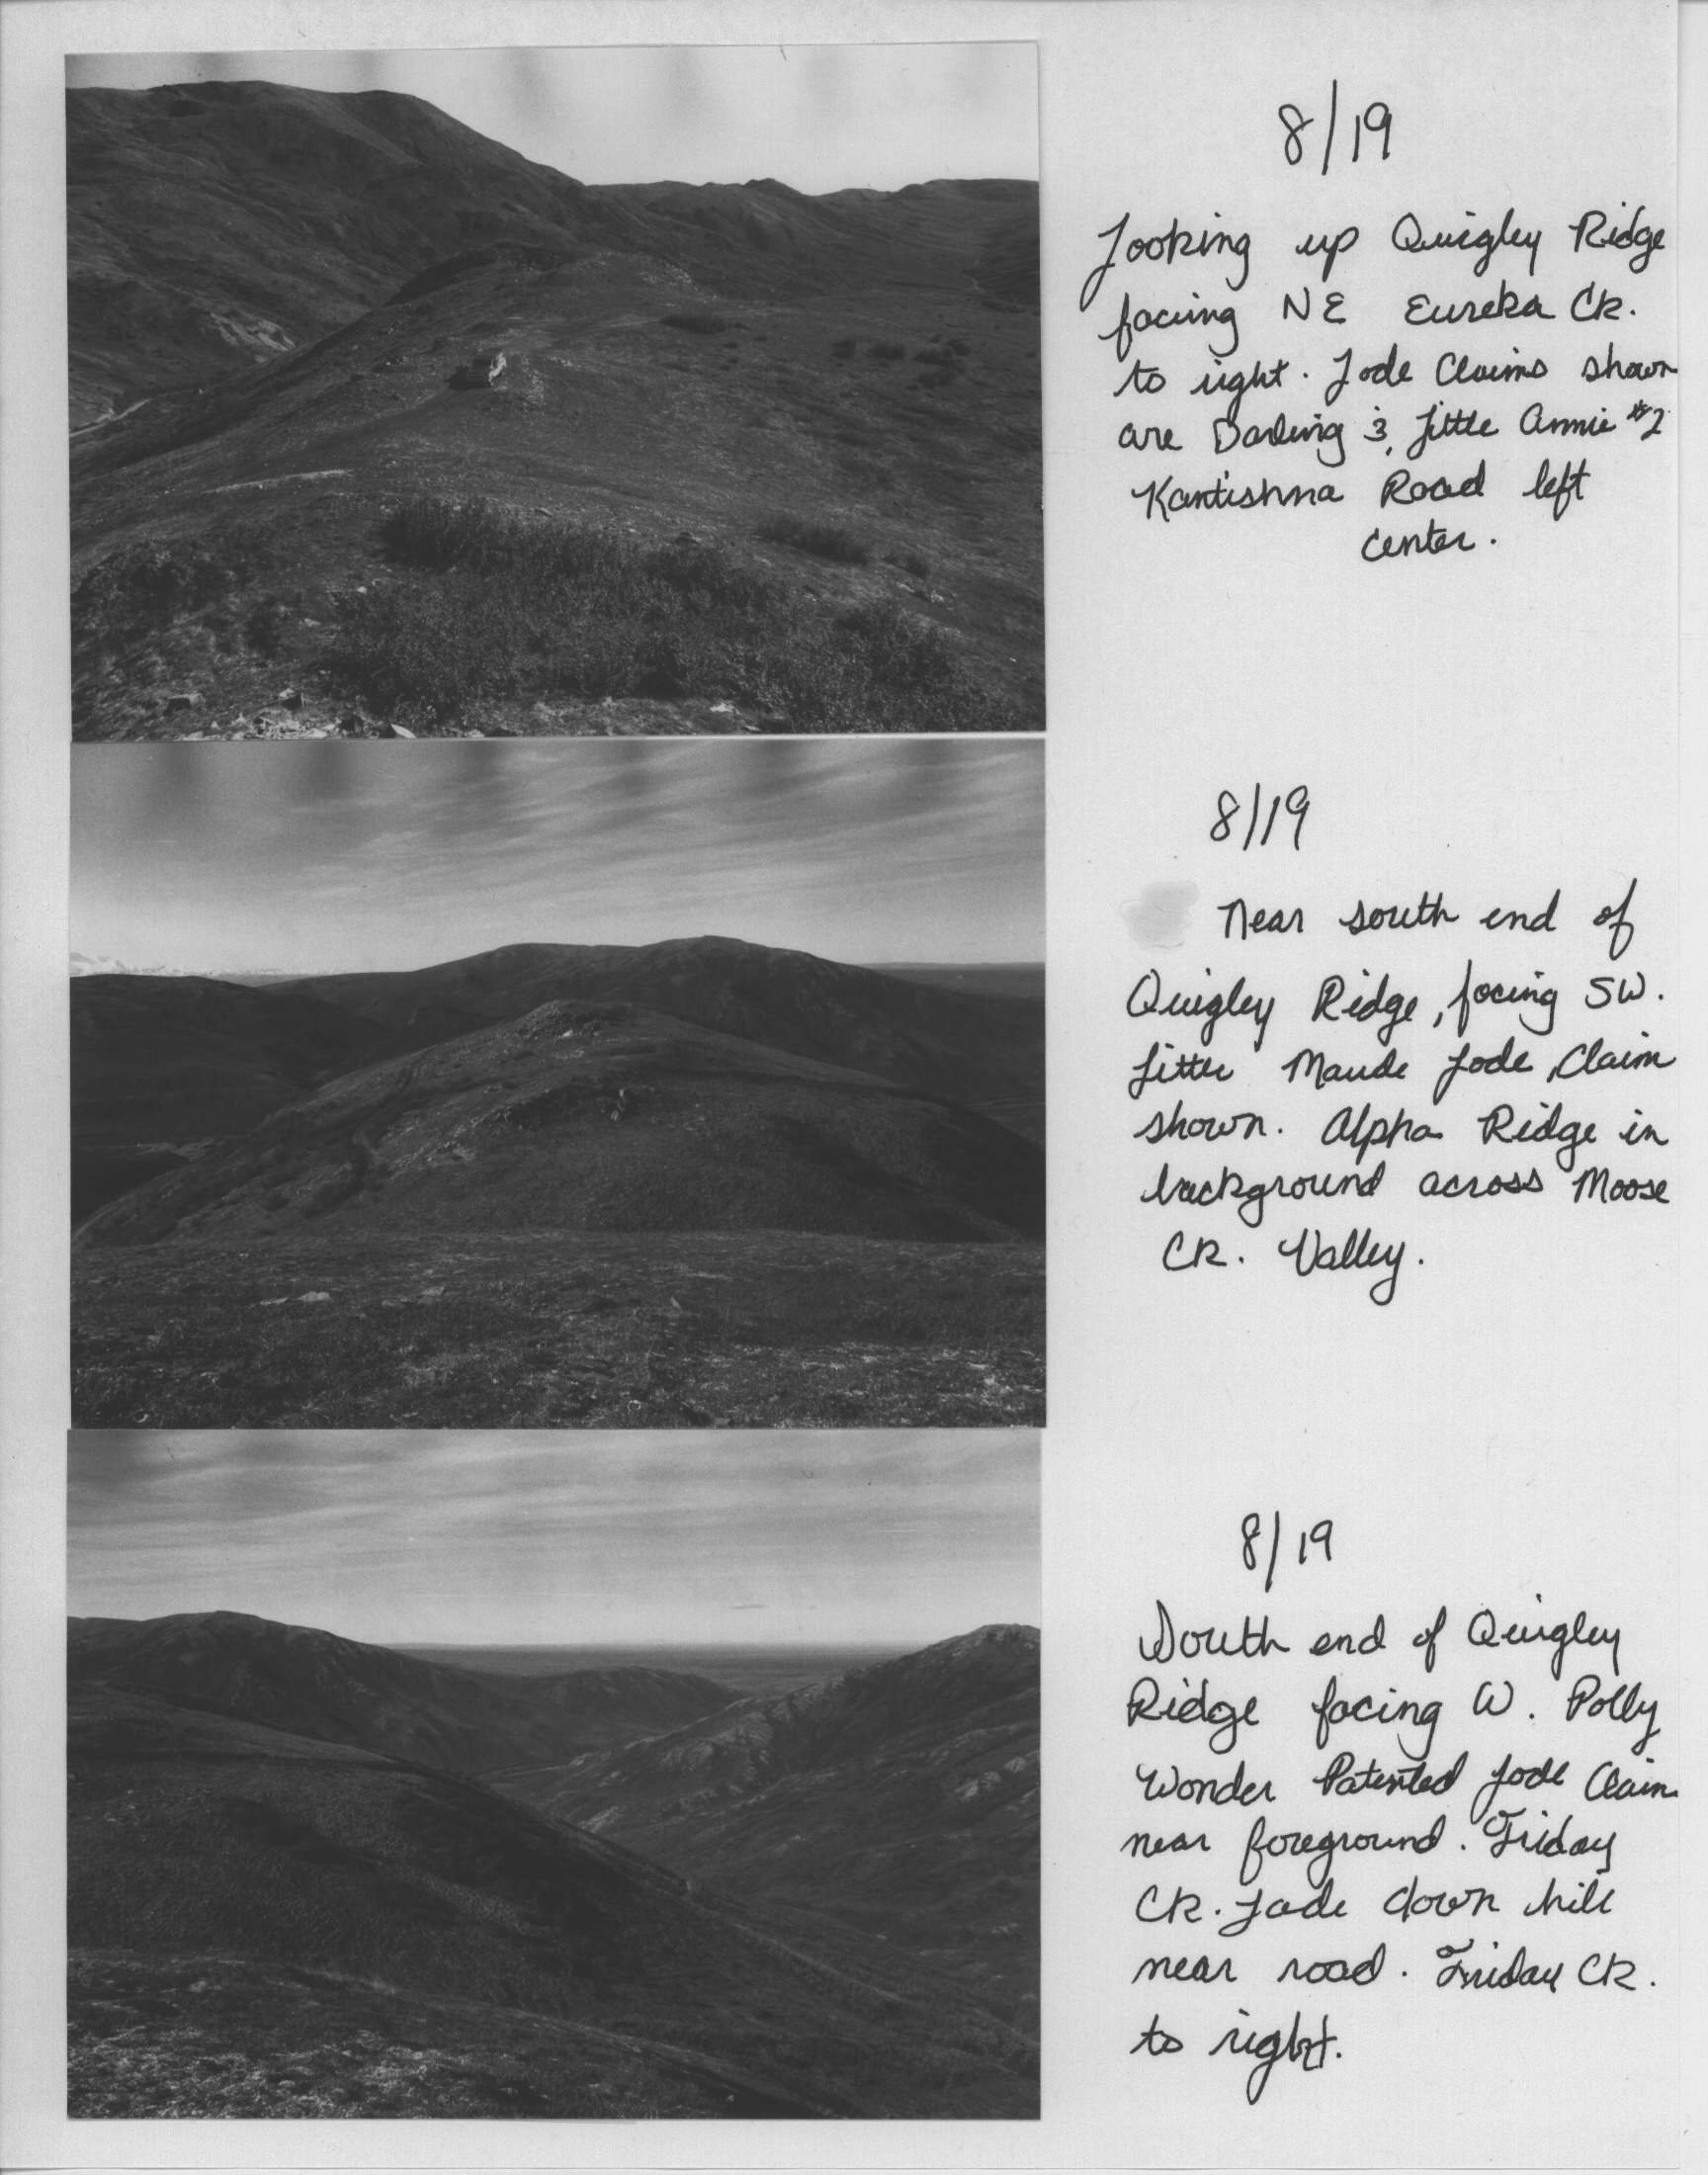 8/19
Looking up Quigley Ridge
facing NE Eureka Ck.
to right. Lode Claims shown
are Darling & Little Annie #2
Kantishna Road left
center.
8/19
Near south end of
Quigley Ridge, facing SW.
Little Maude Lode Claim
shown. Alpha Ridge in
background across Moose
Ck. Valley.
8/19
South end of Quigley
Ridge facing W. Polly
Wonder Patented Lode Claim
near foreground. Friday
Ck. Lode down hill
near road. Friday Ck.
to right.